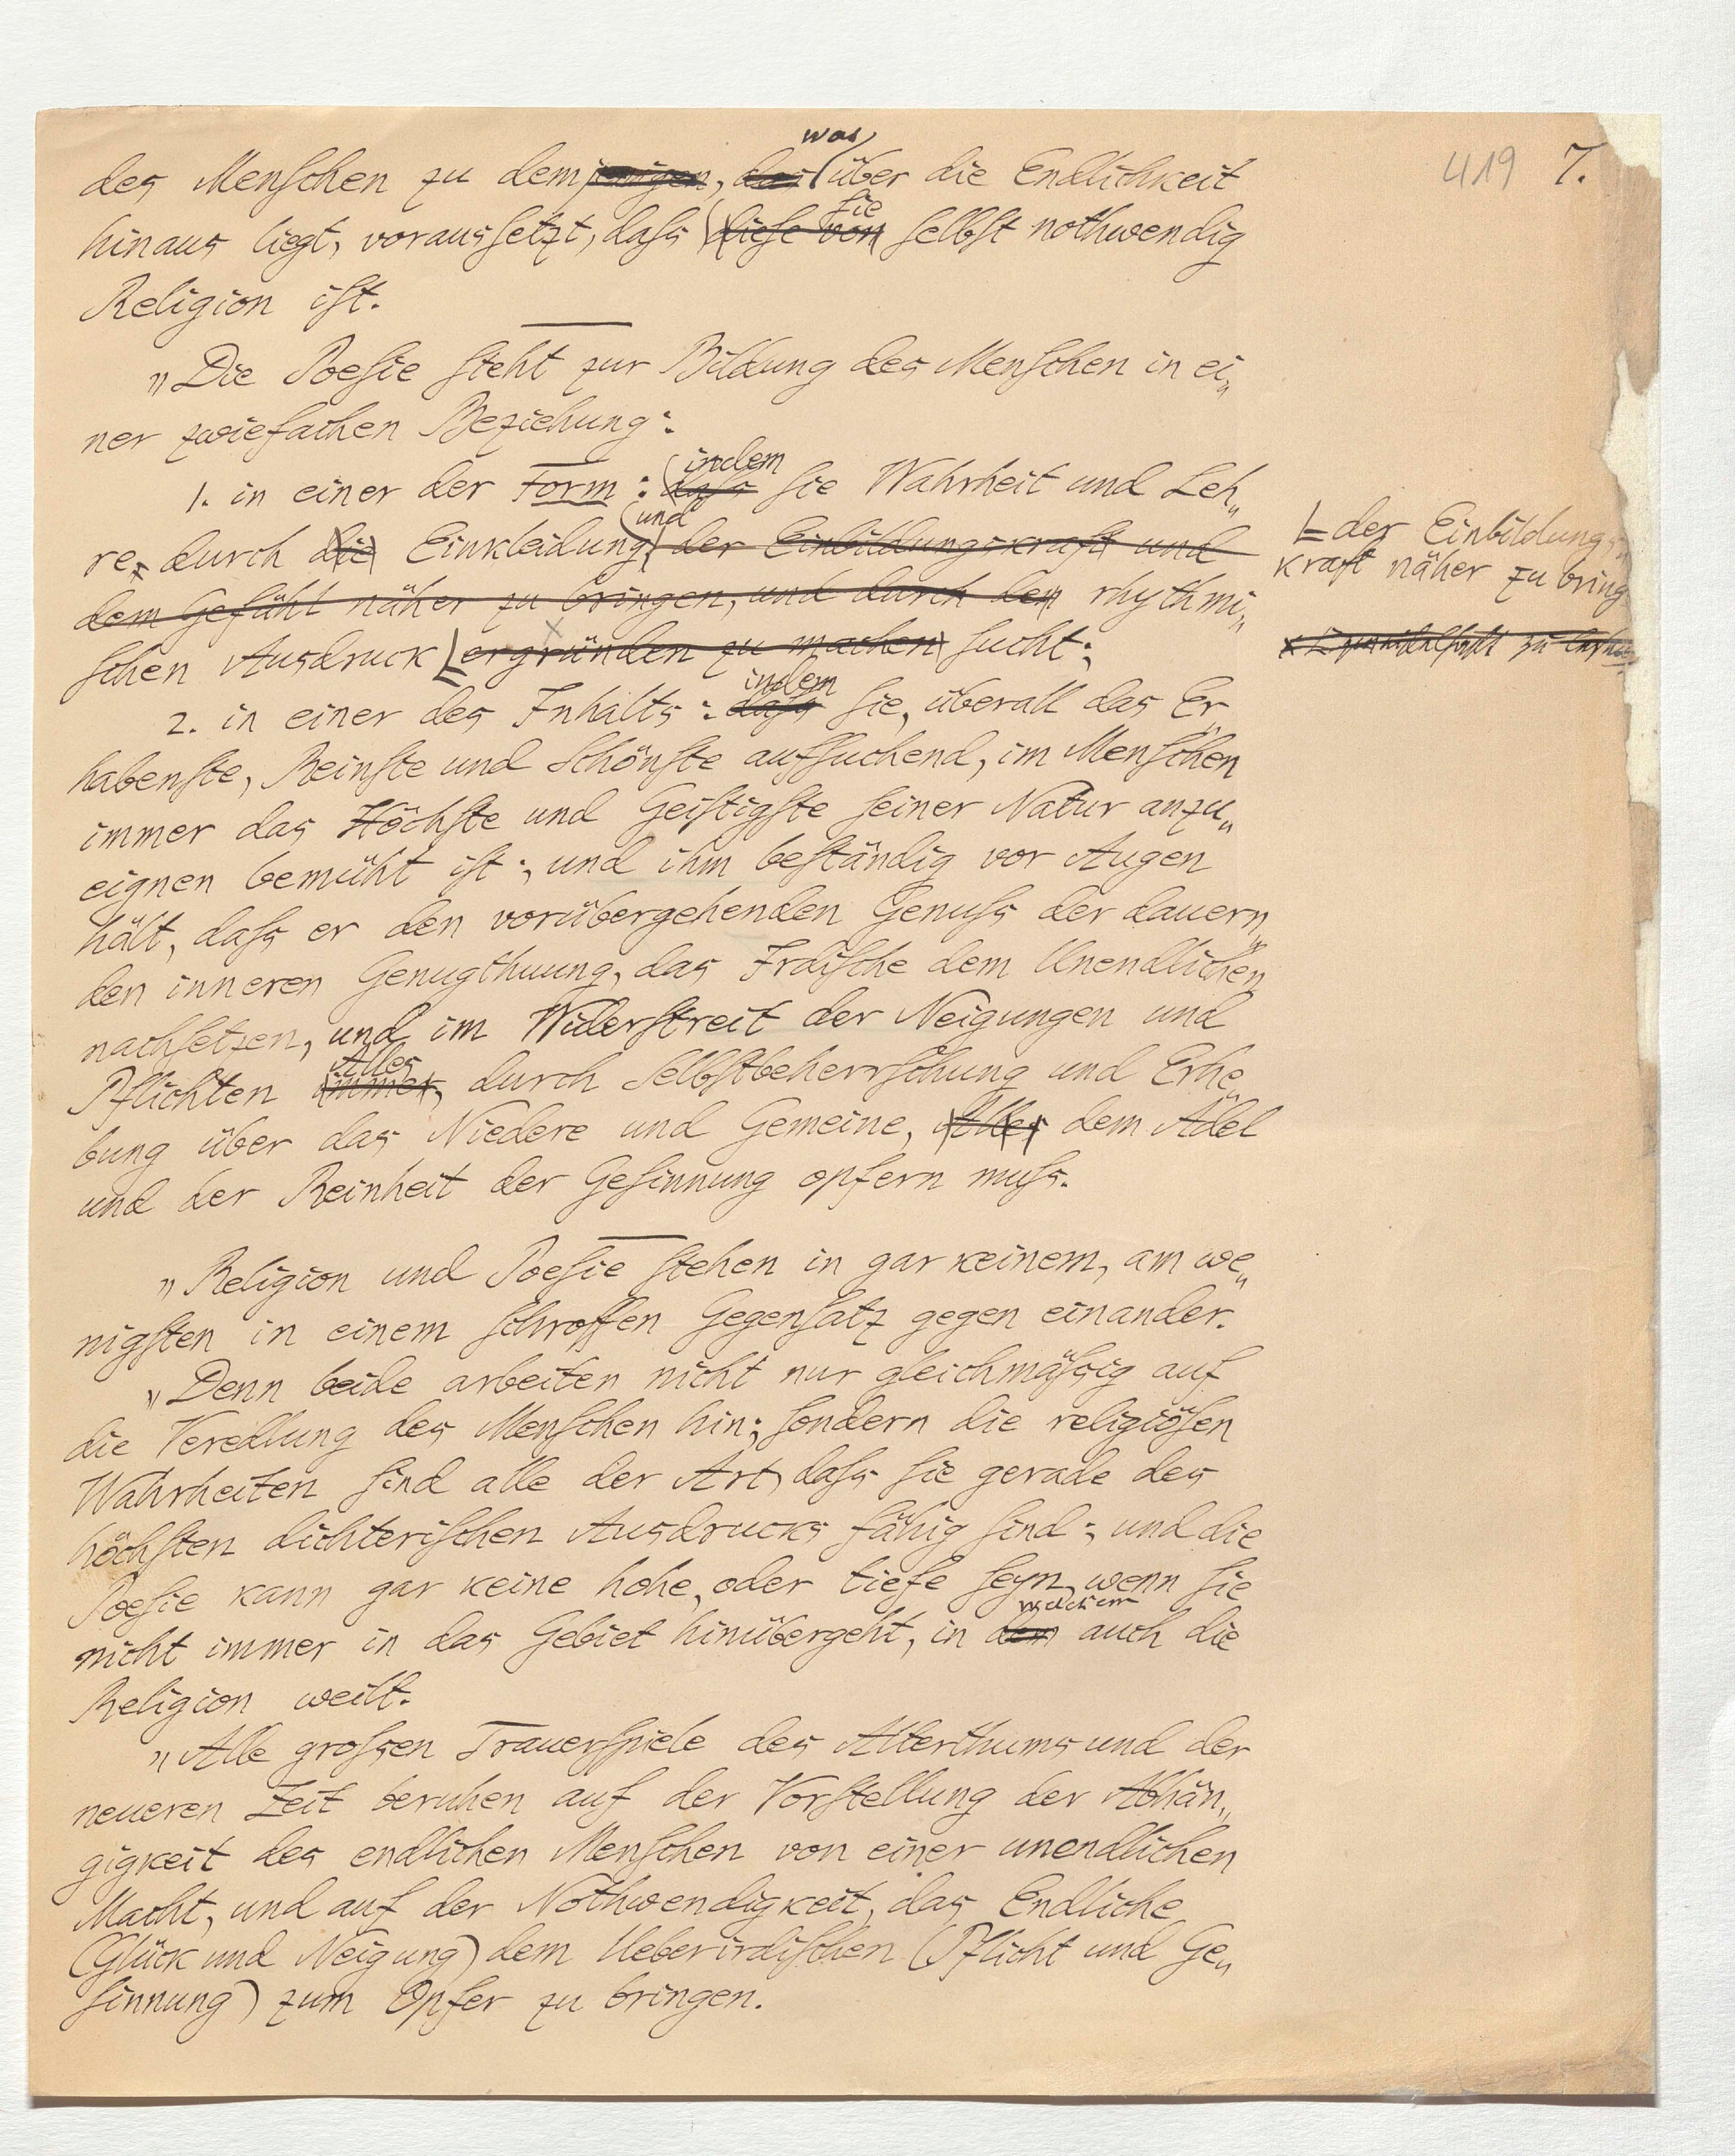 419 7.
was
des Menschen zu demjenigen, das über die Endlichkeit
sie
hinaus liegt, voraussetzt, dass diese von selbst nothwendig
Religion ist.
„Die Poesie steht zur Bildung des Menschen in ei„
ner zwiefachen Beziehung:
indem
1. in einer der Form: dass sie Wahrheit und Leh„
und
re, durch die Einkleidung, der Einbildungskraft und
dem Gefühl näher zu bringen, und durch den rhythmi„
schen Ausdruck ergründen zu machen sucht;
der Einbildungs
kraft näher zu bring
indem
2. in einer des Inhalts: dass sie, überall das Er„
habenste, Reinste und Schönste aufsuchend, im Menschen
immer das Höchste und Geistigste seiner Natur anzu„
eignen bemüht ist; und ihm beständig vor Augen
hält, dass er den vorübergehenden Genuss der dauern„
den inneren Genugthuung, das Irdische dem Unendlichen
nachsetzen, und im Widerstreit der Neigungen und
Alles
Pflichten immer, durch Selbstbeherrschung und Erhe„
bung über das Niedere und Gemeine, Alles dem Adel
und der Reinheit der Gesinnung opfern muss.
„Religion und Poesie stehen in gar keinem, am we„
nigsten in einem schroffen Gegensatz gegen einander.
„Denn beide arbeiten nicht nur gleichmässig auf
die Veredlung des Menschen hin; sondern die religiösen
Wahrheiten sind alle der Art, dass sie gerade des
höchsten dichterischen Ausdrucks fähig sind; und die
Poesie kann gar keine hohe, oder tiefe seyn, wenn sie
welchem
nicht immer in das Gebiet hinübergeht, in dem auch die
Religion weilt.
„Alle grossen Trauerspiele des Alterthums und der
neueren Zeit beruhen auf der Vorstellung der Abhän„
gigkeit des endlichen Menschen von einer unendlichen
Macht, und auf der Nothwendigkeit, das Endliche
(Glück und Neigung) dem Ueberirdischen (Pflicht und Ge„
sinnung) zum Opfer zu bringen.